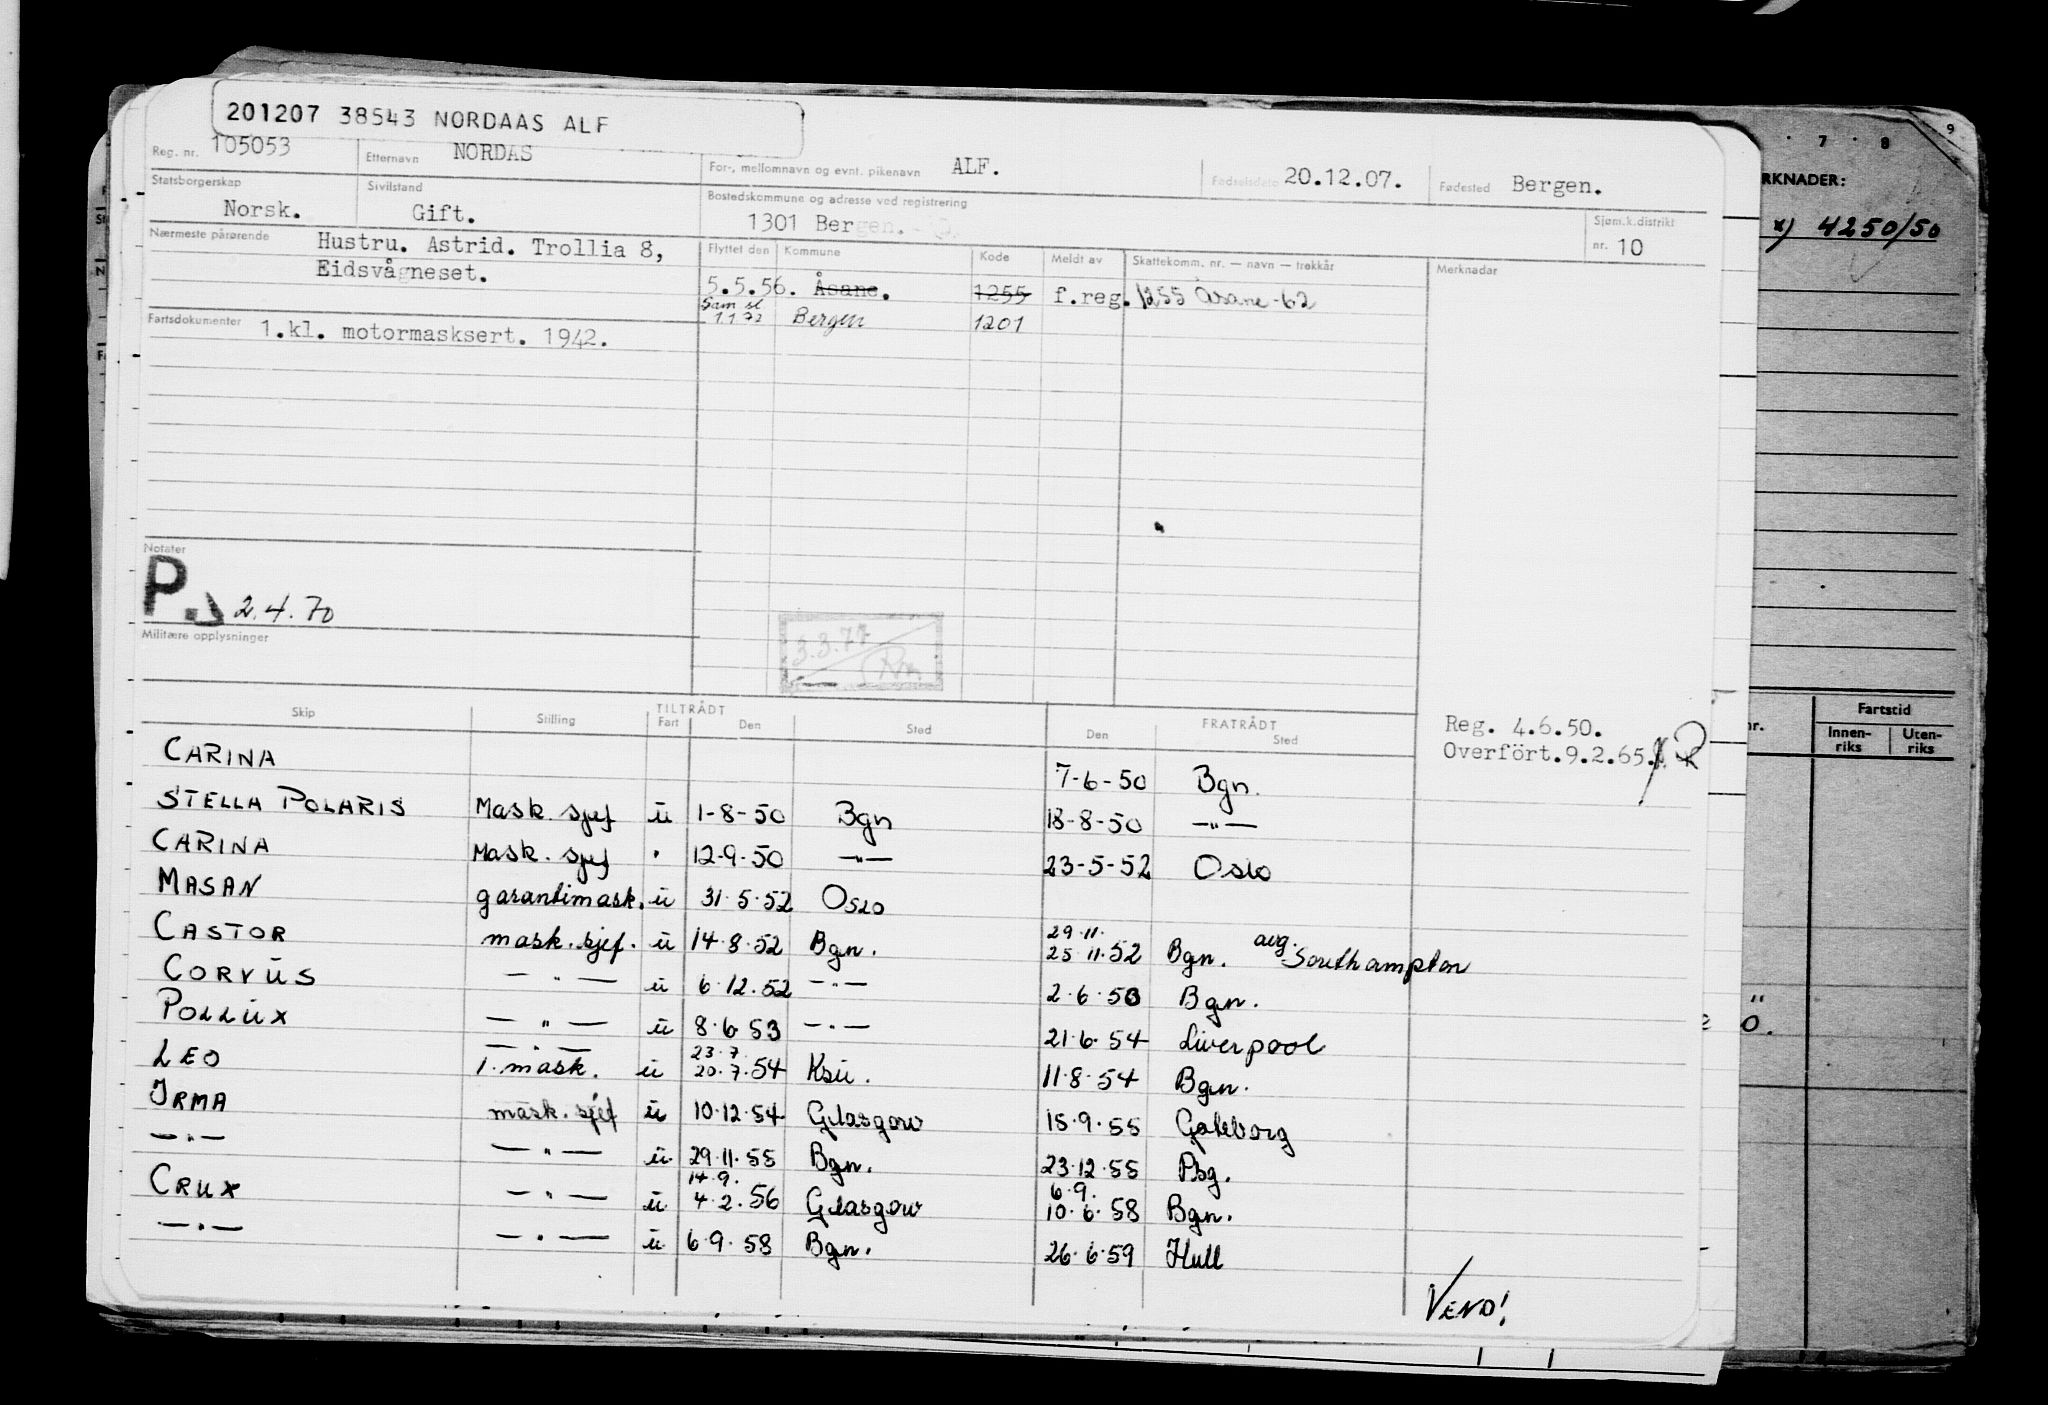 201207 38543 NORDAAS ALF
Reg. nr. 105053 Etternavn NORDAS For-, mellomnavn og evnt. pikenavn ALF. Fødselsdato 20.12.07. Fødested Bergen.
Statsborgerskap Norsk. Sivilstand Gift. Bostedskommune og adresse ved registrering 1301 Bergen. Sjøm.k.distrikt nr. 10
Nærmeste pårørende Hustru. Astrid. Trollia 8,
Eidsvågneset.
Flyttet den Kommune Kode Meldt av Skattekomm. nr. — navn — trekkår Merknader
5.5.56. Åsane. 1255 f.reg. 1255 Åsane -62
Sam sl.
1.1 72 Bergen 1201
Fartsdokumenter 1.kl. motormasksert. 1942.
Notater
P. 2.4.70
Militære opplysninger
3.3.77
Reg. 4.6.50.
Overfört.9.2.65.
Skip Stilling TILTRÅDT Fart Den Sted FRATRÅDT Den Sted
CARINA 7-6-50 Bgn.
STELLA POLARIS Mask. sjef ū 1-8-50 Bgn 18-8-50 —"—
CARINA Mask. sjef " 12-9-50 —"— 23-5-52 Oslo
MASAN garantimask. ū 31.5.52 Oslo
29.11.
CASTOR mask. sjef. ū 14.8.52 Bgn. 25.11.52 Bgn. avg. Southampton
CORVUS — " — ū 6.12.52 — " — 2.6.53 Bgn.
POLLUX — " — ū 8.6.53 — " — 21.6.54 Liverpool
— " — 23.7.
LEO 1. mask. ū 20.7.54 Ksu. 11.8.54 Bgn.
IRMA mask. sjef ū 10.12.54 Glasgow 15.9.55 Gøteborg
— " — — " — ū 29.11.55 Bgn. 23.12.55 Pbg.
14.9. 6.9.
CRUX — " — ū 4.2.56 Glasgow 10.6.58 Bgn.
— " — — " — ū 6.9.58 Bgn. 26.6.59 Hull
VEND!
7 8 9
RKNADER:
x) 4250/50
nr. Fartstid
Innen-riks Uten-riks
"
0.